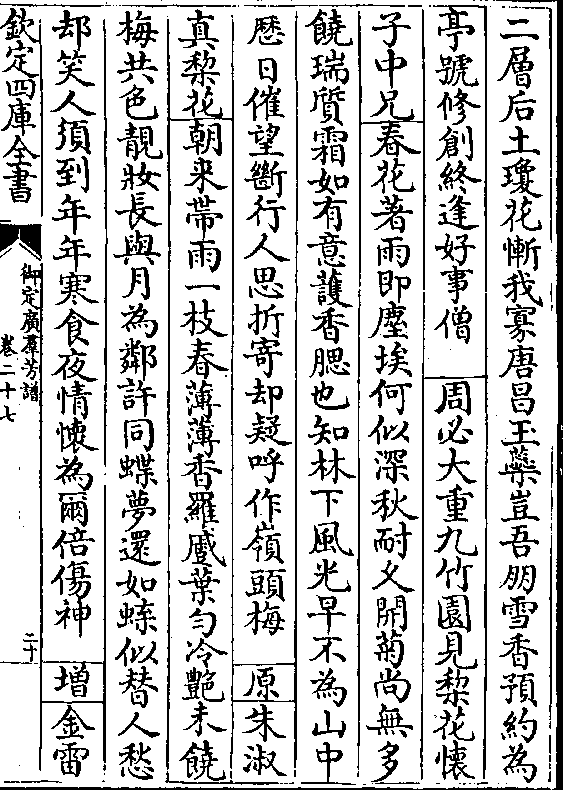 二層后土瓊花慚我寡唐昌玉蘂豈吾朋雪香預約為
亭號修創終逢好事僧　周必大重九竹園見梨花懷
子中兄春花著雨即塵埃何似深秋耐久開菊尚無多
饒瑞質霜如有意護香腮也知林下風光早不為山中
厯日催望斷行人思折寄却疑呼作嶺頭梅　原朱淑
真梨花朝来帶雨一枝春薄薄香羅蹙葉勻冷艶未饒
梅共色靚妝長與月為鄰許同蝶夢還如蝶似替人愁
却笑人須到年年寒食夜情懷為爾倍傷神　增金雷
欽定四庫全書
御定廣羣芳譜
卷二十七
二十